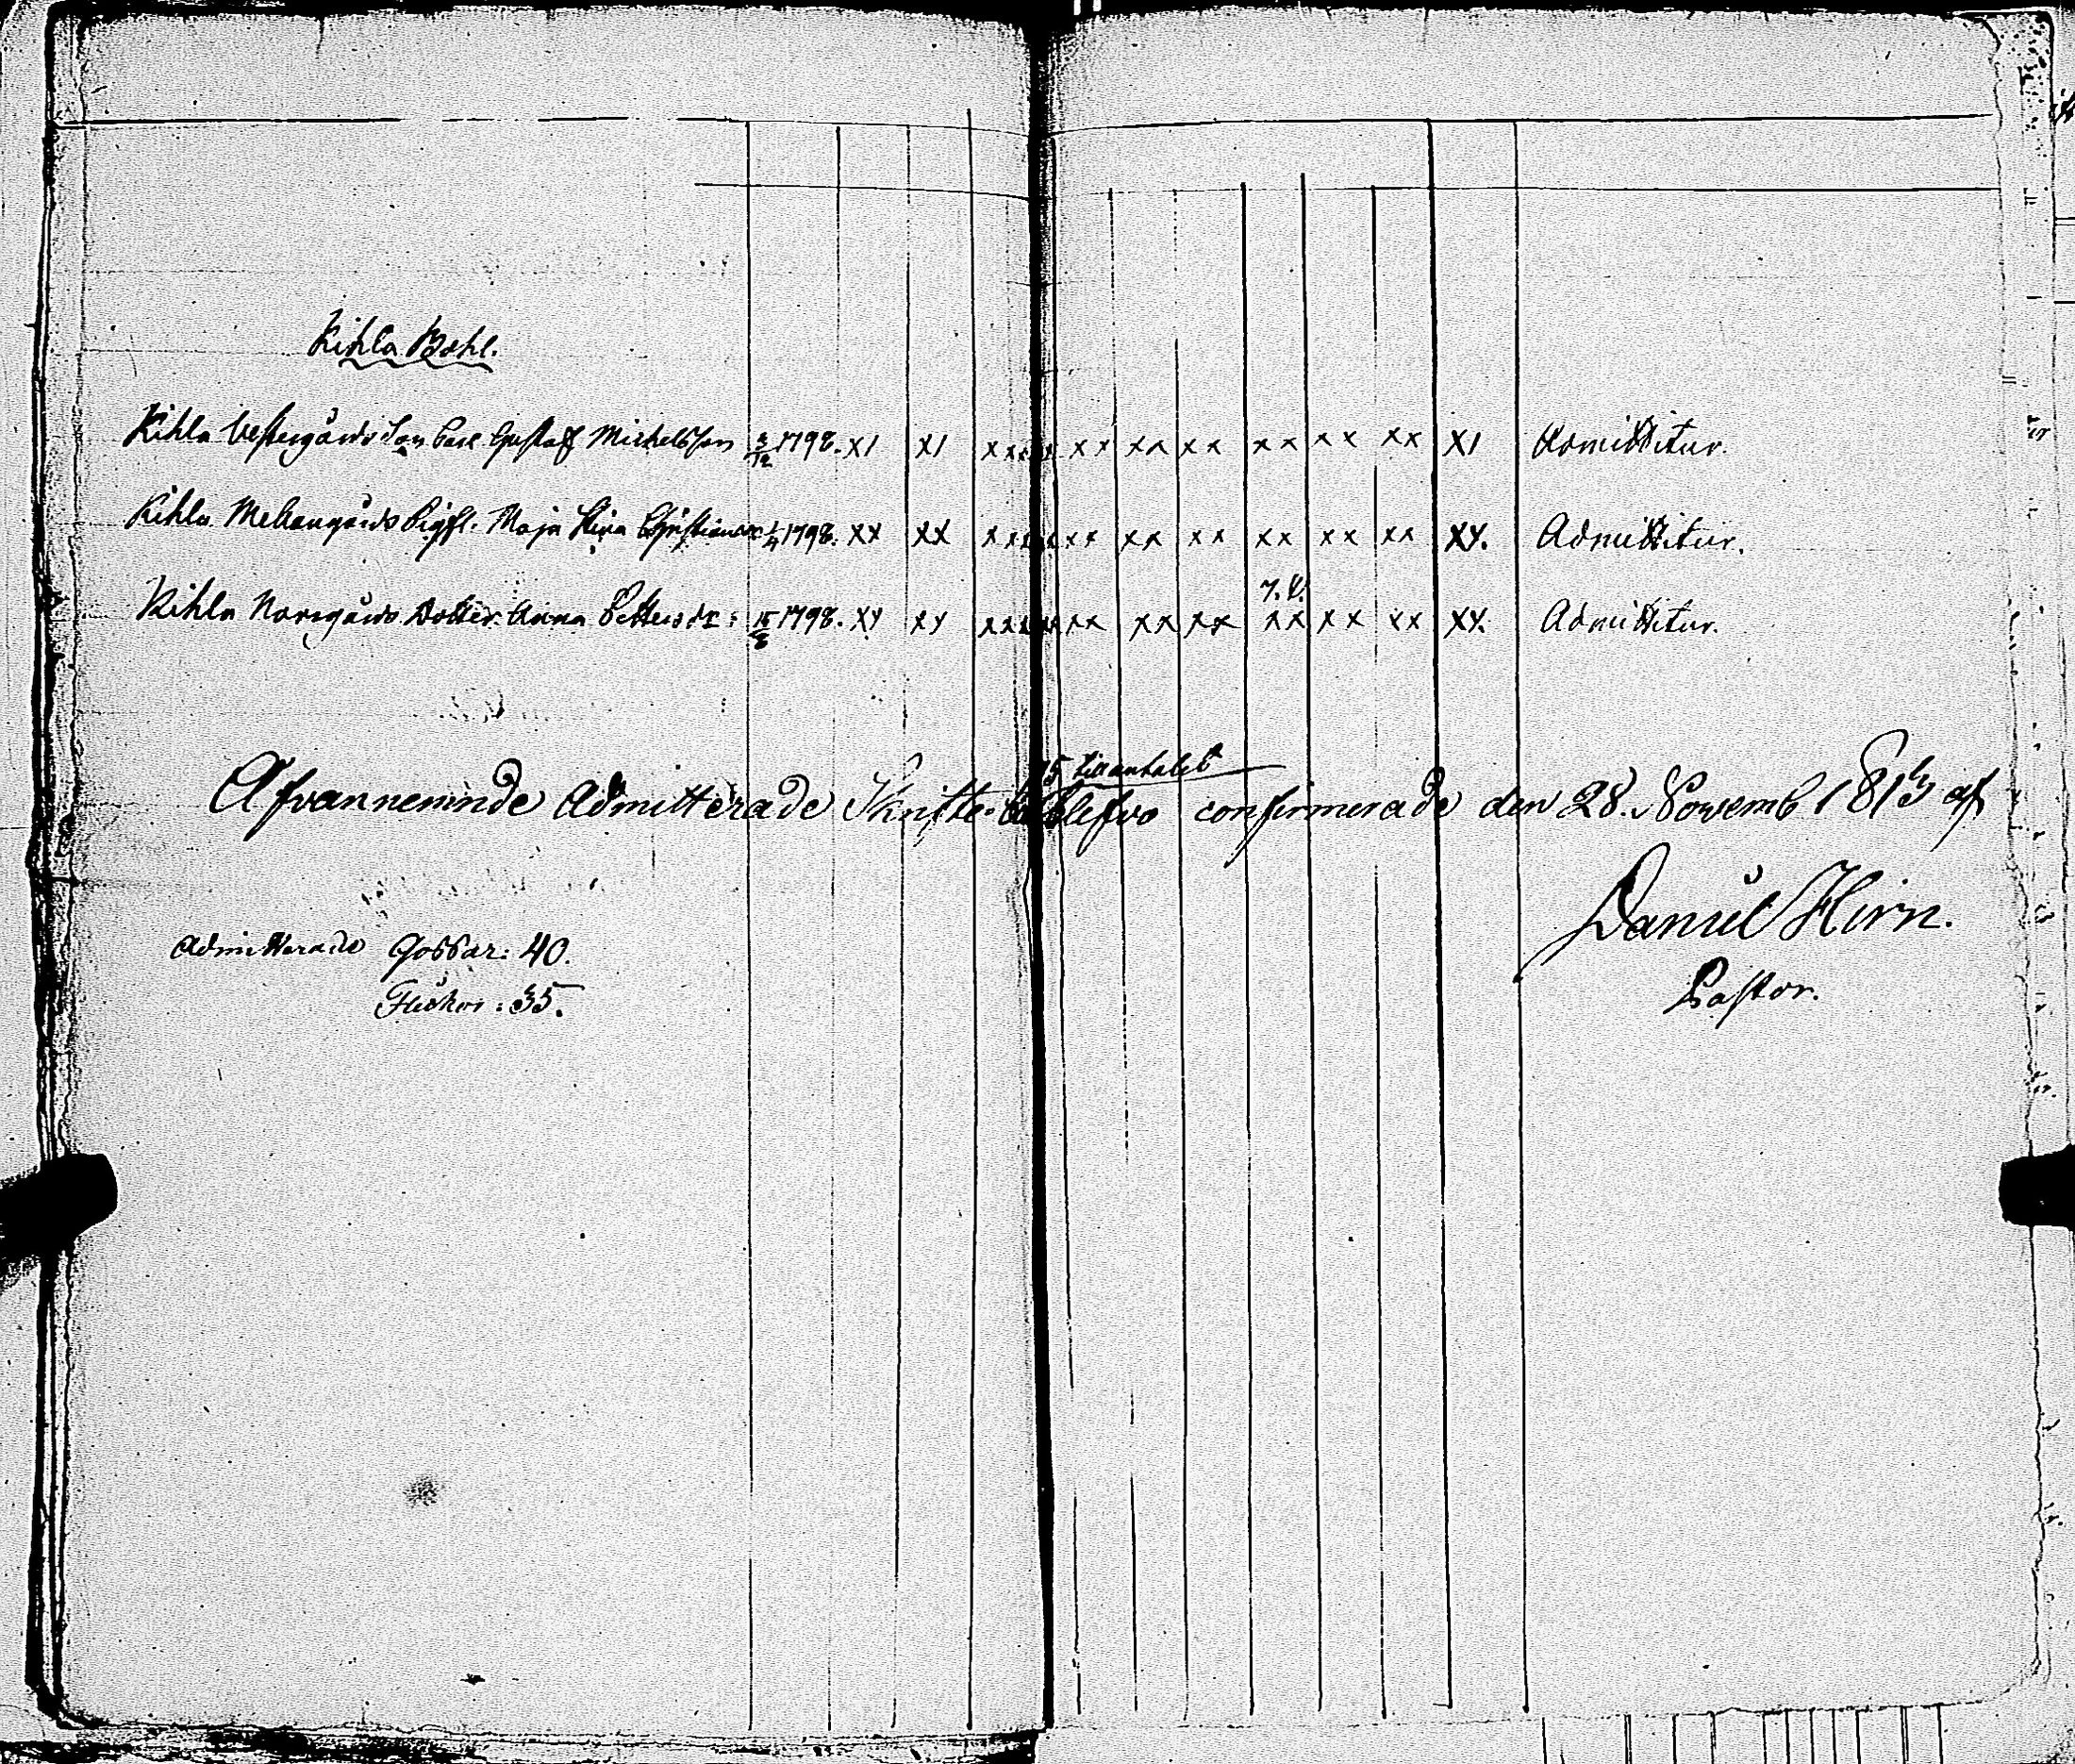 Kihla Bohl.
Kihla Vestergårds Son Carl Gustaff Michelsson 3/12 1798. XI XI xx xx xx xx xx xx xx XI Admittitur.
Kihla Mellangårds Pigfl. Maja Stina Christiansdr 1/4 1798. XX XX xx xx xx xx xx xx xx XX. Admittitur.
7. V.
Kihla Norrgårds Dotter Anna Pettersdr: 15/8 1798. XX XX xx xx xx xx xx xx xx XX. Admittitur.
75 till antalet
Afvannemnde Admitterade Skrifte-Barn blefvo confirmerade den 28. Novemb 1813 af
Daniel Hirn.
Pastor.
Admitterade Gossar: 40.
Flickor: 35.